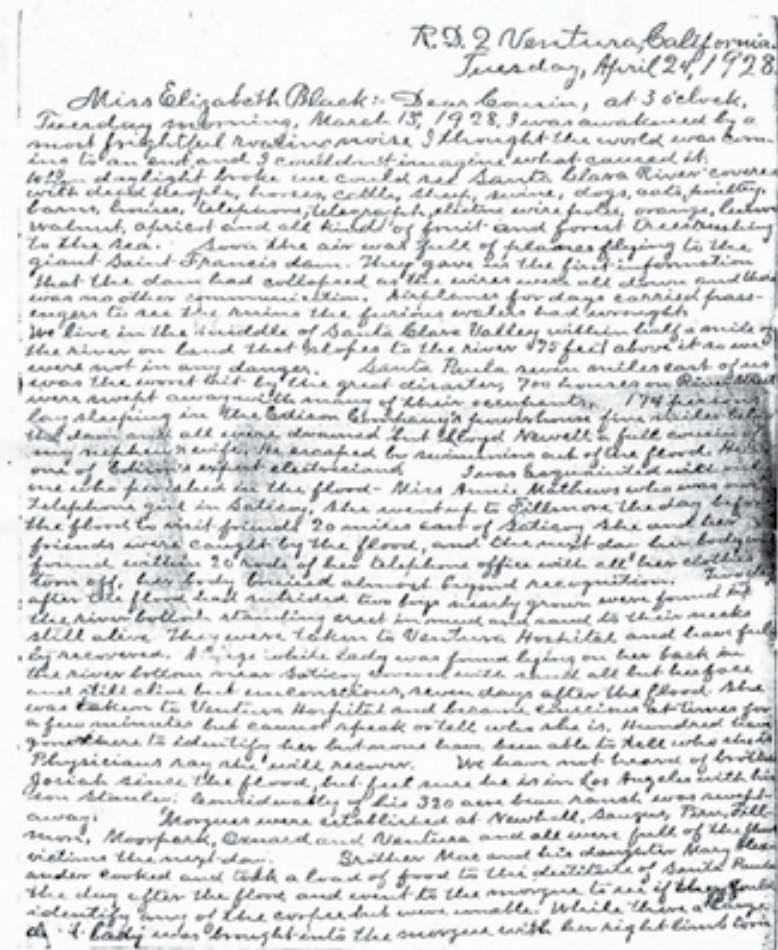 R.D.2 Ventura, California.
Tuesday, April 24, 1928.
Miss Elizabeth Black:- Dear Cousin, at 3 o'clock,
Tuesday morning, March 13, 1928, I was awakened by a
most frightful roaring noise I thought the world was com-
ing to an end and I couldn't imagine what caused it.
When daylight broke we could see Santa Clara River covered
with dead people, horses, cattle, sheep, swine, dogs, cats, poultry,
barns, houses, telephone, telegraph, electric wire poles, orange, lemon
walnut, apricot and all kind of fruit and forest trees rushing
to the sea. Soon the air was full of planes flying to the
giant Saint Francis dam. They gave us the first information
that the dam had collapsed as the wires were all down and there
was no other communication. Airplanes for days carried pass-
engers to see the ruins the furious waters had wrought.
We live in the middle of Santa Clara Valley within half a mile of
the river on land that slopes to the river 75 feet above it so we
were not in any danger. Santa Paula seven miles east of us
was the worst hit by the great disaster, 700 houses on River
were swept away with many of their occupants. 174
lay sleeping in the Edison Company's powerhouse five miles below
the dam and all were drowned but Lloyd Newell a full cousin of
my nephew's wife. He escaped by swimming out of the flood. He is
one of Edison's expert electricians I was acquainted with only
one who perished in the flood - Miss Annie Mathews who was our
telephone girl in Saticoy. She went up to Fillmore the day before
the flood to visit friends 20 miles east of Saticoy she and her
friends were caught by the flood, and the next day her body was
found within 20 rods of her telephone office with all her clothes
torn off, her body bruised almost beyond recognition.
after the flood had subsided two boys nearly grown were found in
the river bottom standing erect in mud and sand to their necks
still alive. They were taken to Ventura Hospital and have full-
y recovered. A large white lady was found lying on her back in
the river bottom near Saticoy covered with mud all but her face
and still alive but unconscious, seven days after the flood. She
was taken to Ventura Hospital and became conscious at times for
a few minutes but cannot speak or tell who she is. Hundred have
gone there to identify her but none have been able to tell who she is
Physicians say she will recover. We have not heard of brother
Josiah since the flood, but feel sure he is in Los Angeles with his
son Stanley. Considerably of his 320 acre bean ranch was swept
away. Morgues were established at Newhall, Saugus, Piru, Fill-
more, Moorpark, Oxnard and Ventura and all were full of the flood
victims the next day. Brother Mac and his daughter Mary Alex-
ander cooked and took a load of food to the destitute of Santa Paula
the day after the flood and went to the morgue to see if they could
identify any of the corpse but were unable. While there a large
lady was brought into the morgue with her right limb torn